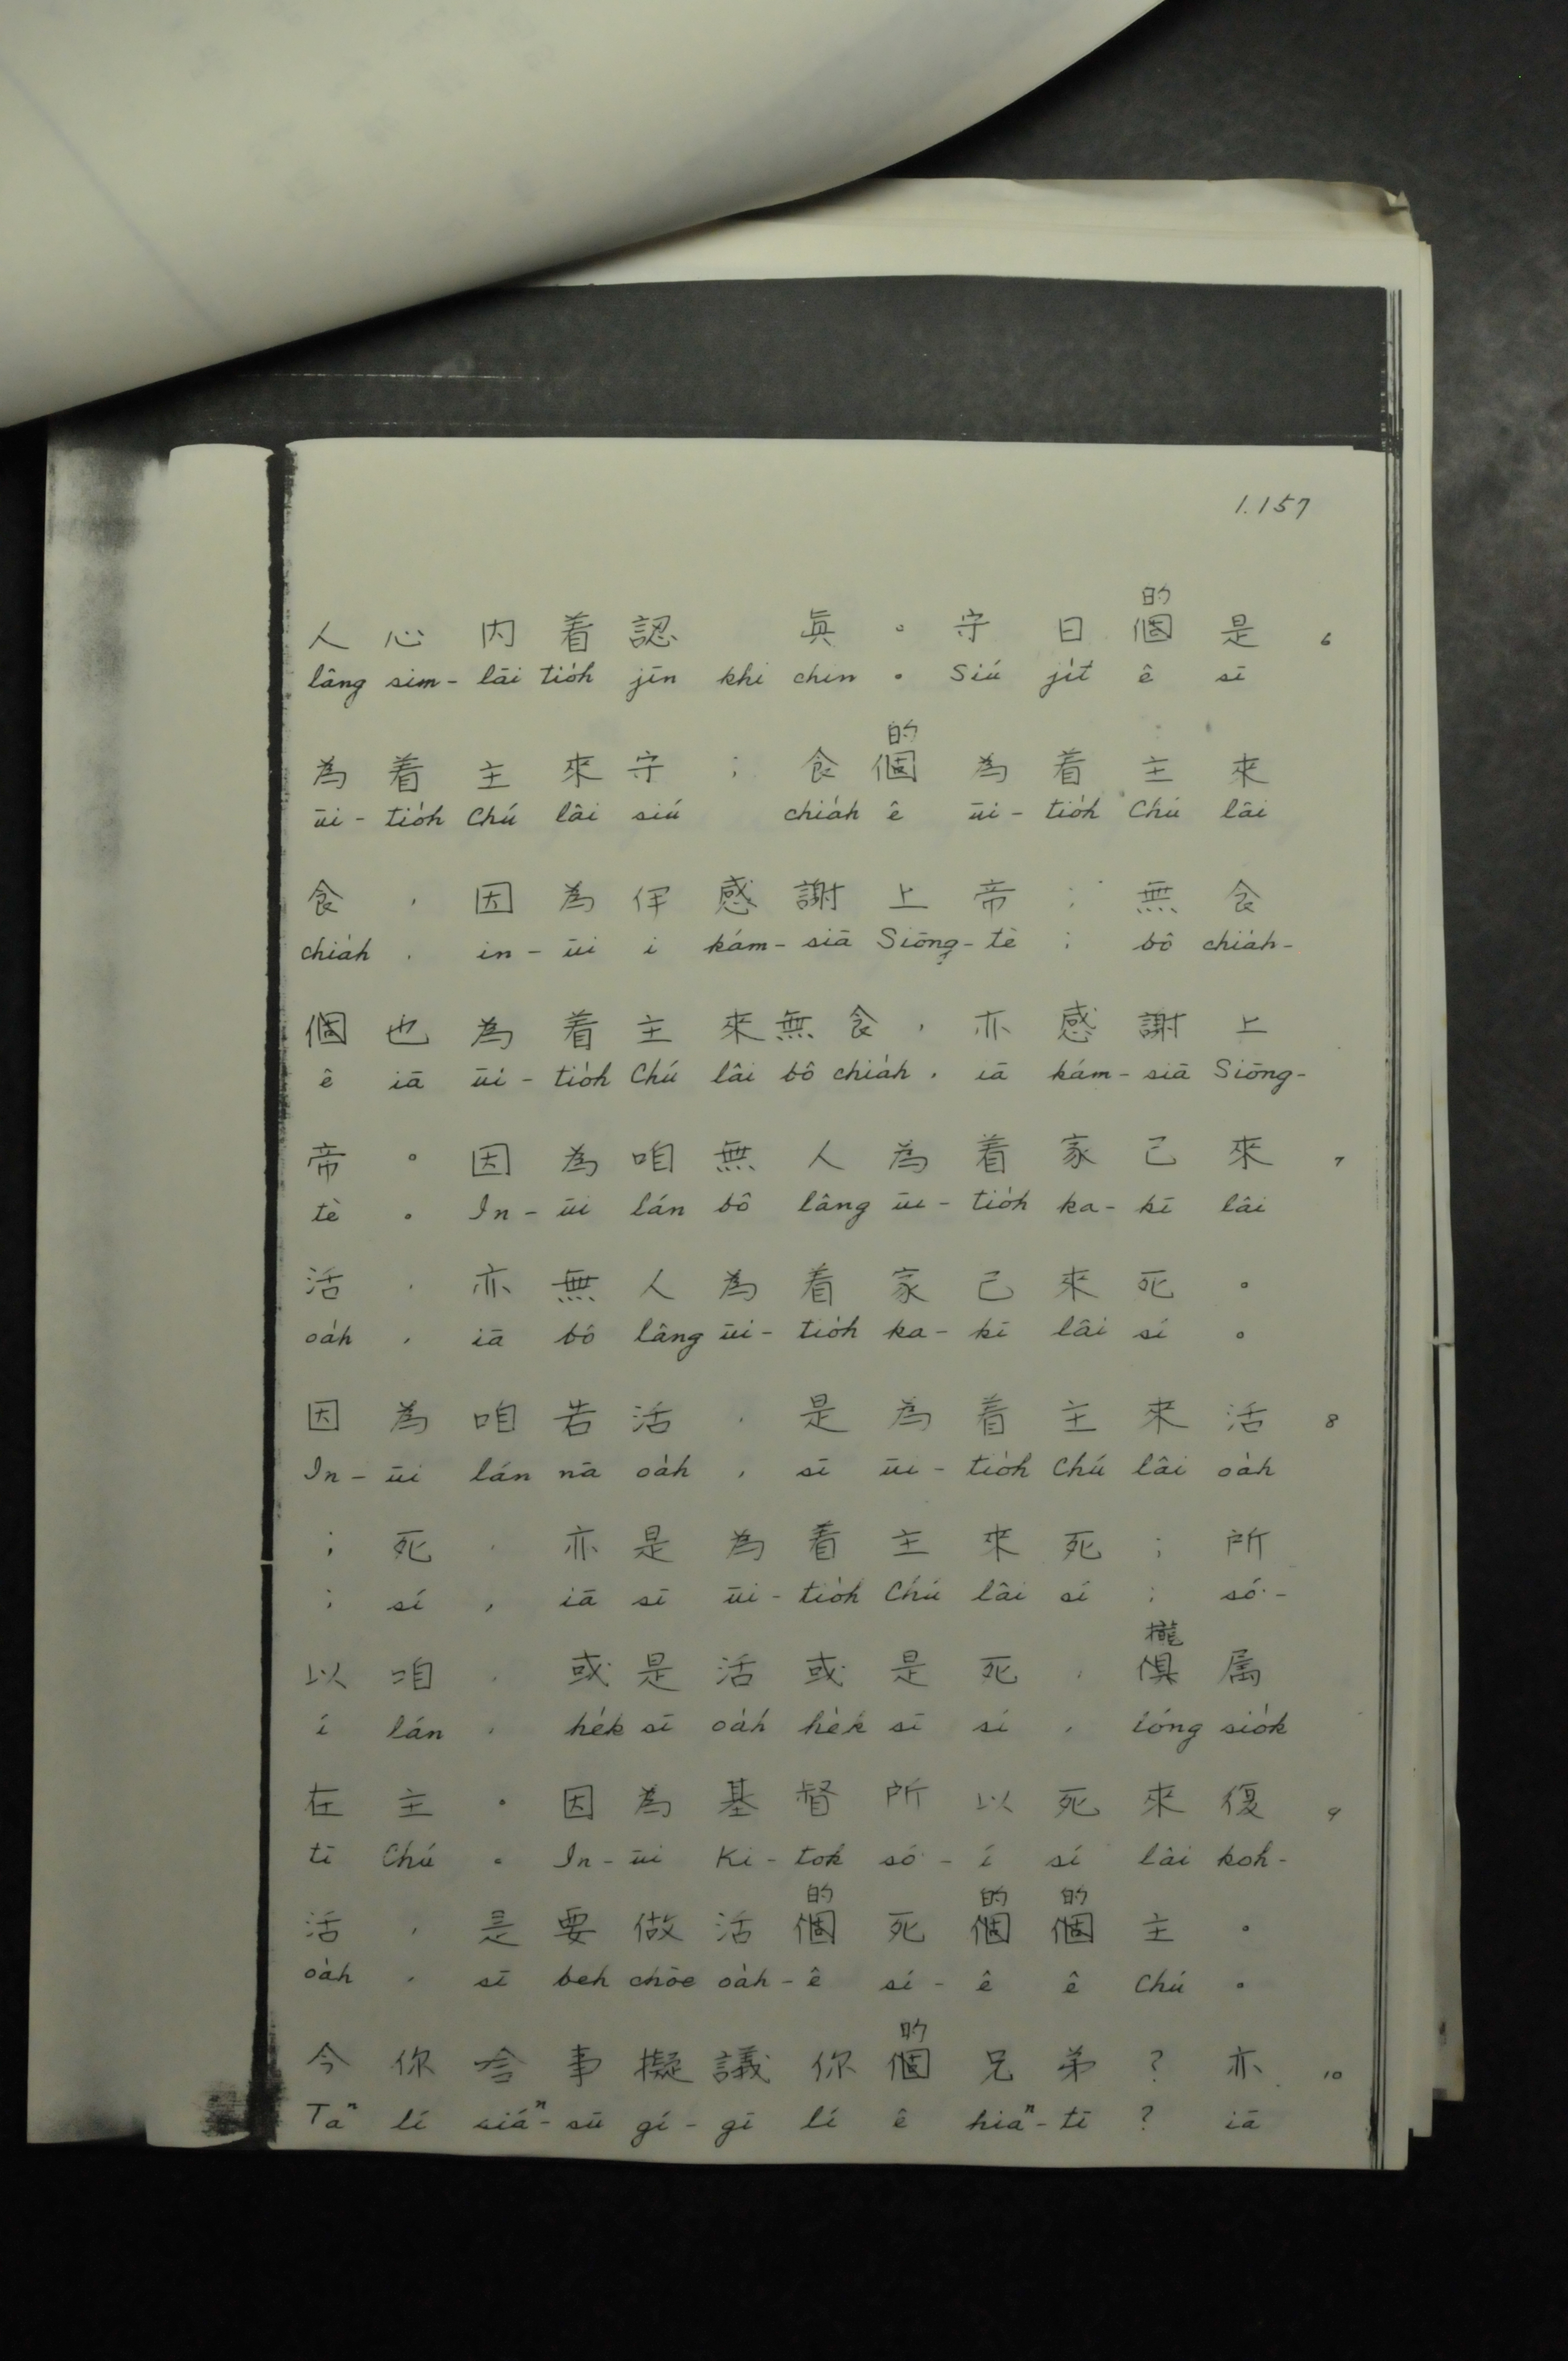 1.157
的
人心内着認 眞。守日個是 6
lâng sim-lāi tio̍h jīn khi chin。Siú ji̍t ê sī
的
為着主來守；食個為着主來
ūi-tio̍h Chú lâi siú chia̍h ê ūi-tio̍h Chú lâi
食，因為伊感謝上帝；無食
chia̍h, in-ūi i kám-siā Siōng-tè; bô chia̍h-
個也為着主來無食，亦感謝上
ê iā ūi-tio̍h Chú lâi bô chia̍h, iā kám-siā Siōng-
帝。因為咱無人為着家己來 7
tè。In-ūi lán bô lâng ūi-tio̍h ka-kī lâi
活，亦無人為着家己來死。
oa̍h, iā bô lâng ūi-tio̍h ka-kī lâi sí。
因為咱若活，是為着主來活 8
In-ūi lán nā oa̍h, sī ūi-tio̍h Chú lâi oa̍h
；死，亦是為着主來死；所
; sí, iā sī ūi-tio̍h Chú lâi sí; só͘-
攏
以咱，或是活或是死，俱属
í lán, he̍k sī oa̍h he̍k sī sí, lóng sio̍k
在主。因為基督所以死來復 9
tī Chú。In-ūi Ki-tok só͘-í sí lâi koh-
的 的 的
活，是要做活個死個個主。
oa̍h, sī beh chòe oa̍h-ê sí-ê ê Chú。
的
今你啥事擬議你個兄弟？亦 10
Taⁿ lí siáⁿ-sū gí-gī lí ê hiaⁿ-tī? iā